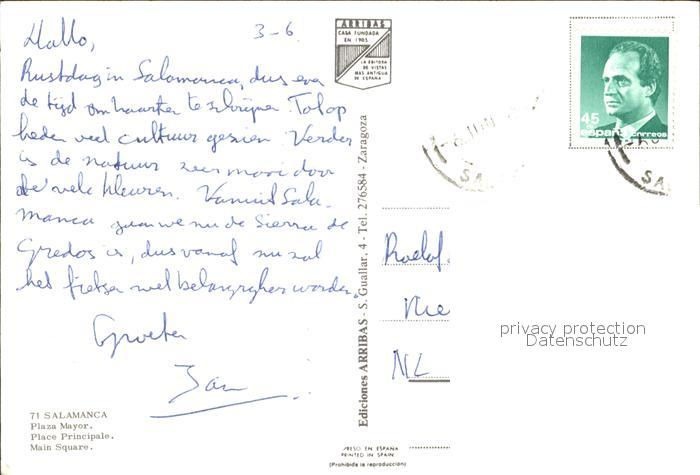 Hallo, 3-6.
Rustdag in Salamanca, dus even
de tijd om kaarten te schrijven. Tot op
heden veel cultuur gezien. Verder
is de natuur zeer mooi door
de vele kleuren. Vanuit Sala-
manca gaan we nu de Sierra de
Gredos in, dus vanaf nu zal
het fietsen wel belangrijker worden.
Groeten
Jan
71 SALAMANCA
Plaza Mayor.
Place Principale.
Main Square.
ARRIBAS
CASA FUNDADA
EN 1905
LA EDITORA
DE VISTAS
MAS ANTIGUA
DE ESPAÑA
Ediciones ARRIBAS - S. Guallar, 4 - Tel. 276584 - Zaragoza
PRESO EN ESPAÑA
PRINTED IN SPAIN
(Prohibida la reproducción)
45
españa correos
JUN
SA
SA
Roelof
NL
privacy protection
Datenschutz